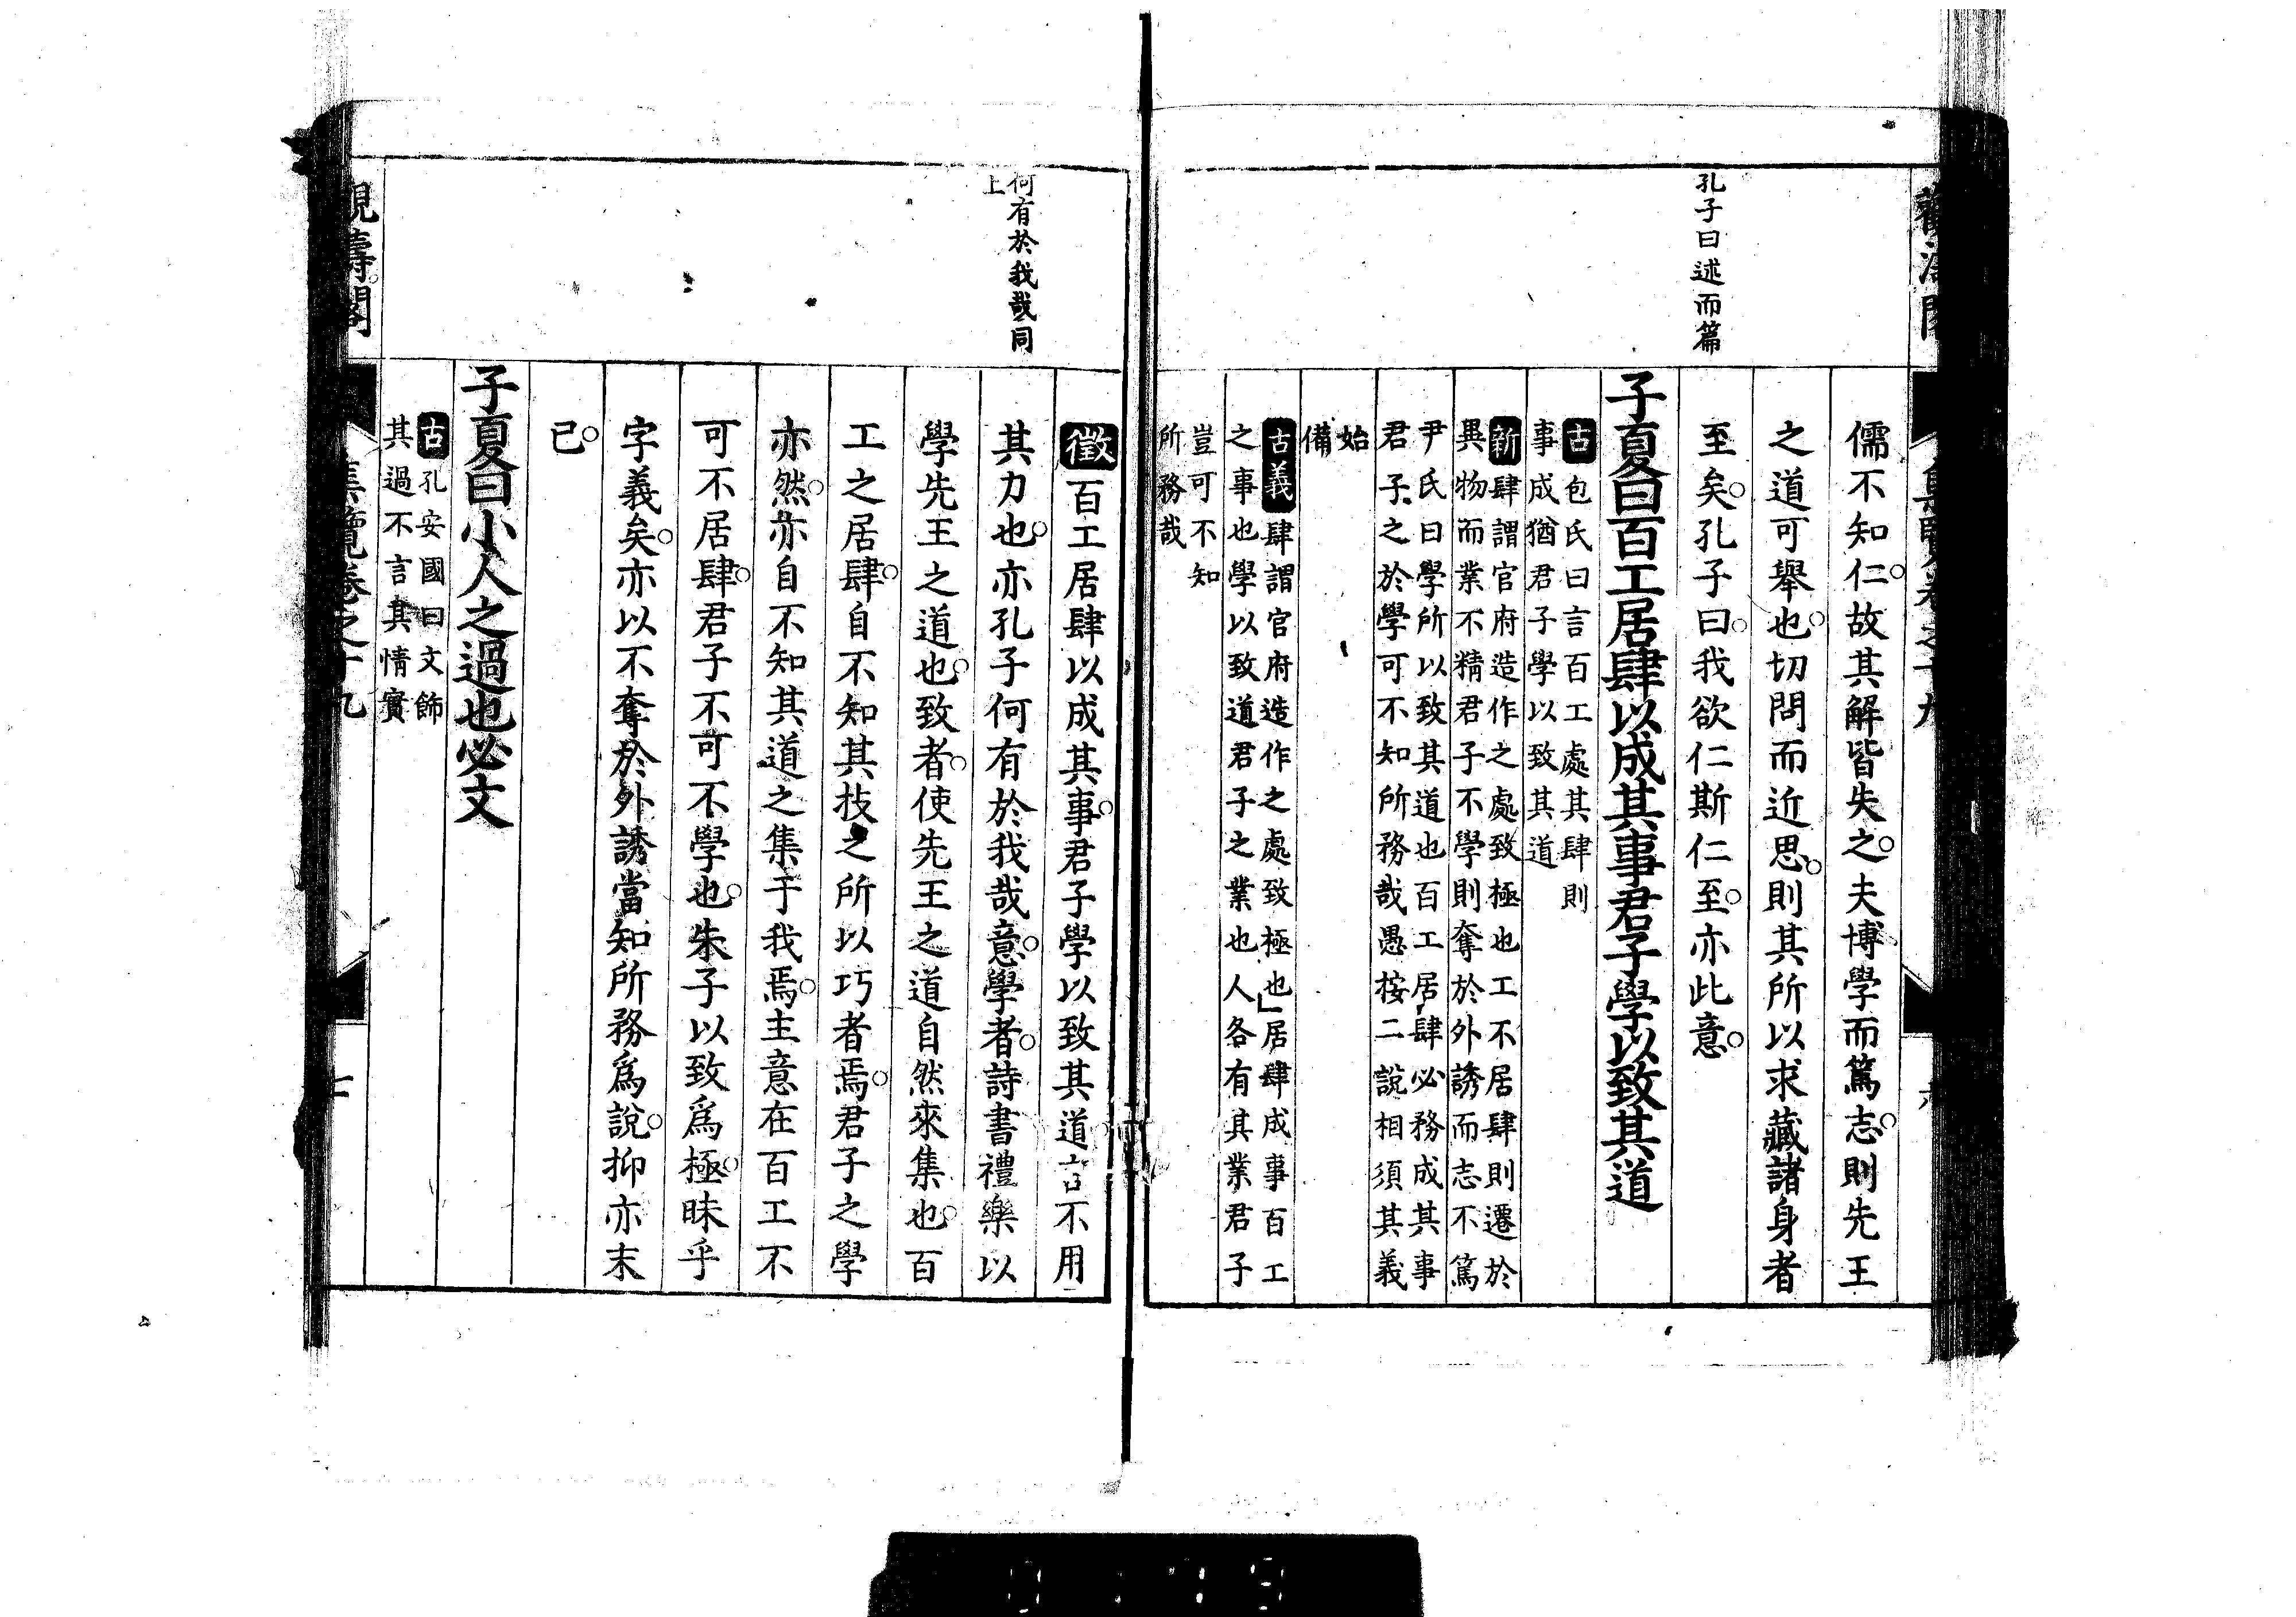 孔子曰述而篇
儒不知仁。故其解皆失之。夫博學而篤志。則先王
之道可舉也。切問而近思。則其所以求藏諸身者
至矣。孔子曰。我欲仁斯仁至。亦此意。
子夏曰百工居肆以成其事君子學以致其道
古包氏曰言百工處其肆則
事成猶君子學以致其道
新肆謂官府造作之處致極也工不居肆則遷於
異物而業不精君子不學則奪於外誘而志不篤
尹氏曰學所以致其道也百工居肆必務成其事
君子之於學可不知所務哉愚按二說相須其義
始
備
古義肆謂官府造作之處致極也」居肆成事百工
之事也學以致道君子之業也人各有其業君子
豈可不知
所務哉
何有於我哉同
上
徵百工居肆以成其事。君子學以致其道。言不用
其力也。亦孔子何有於我哉意。學者。詩書禮樂以
學先王之道也。致者。使先王之道自然來集也。百
工之居肆。自不知其技之所以巧者焉。君子之學
亦然。亦自不知其道之集于我焉。主意在百工不
可不居肆。君子不可不學也。朱子以致爲極。昧乎
字義矣。亦以不奪於外誘當知所務爲說。抑亦末
已。
子夏曰小人之過也必文
古孔安國曰文飾
其過不言其情實
觀濤閣
集覽卷之十九
七